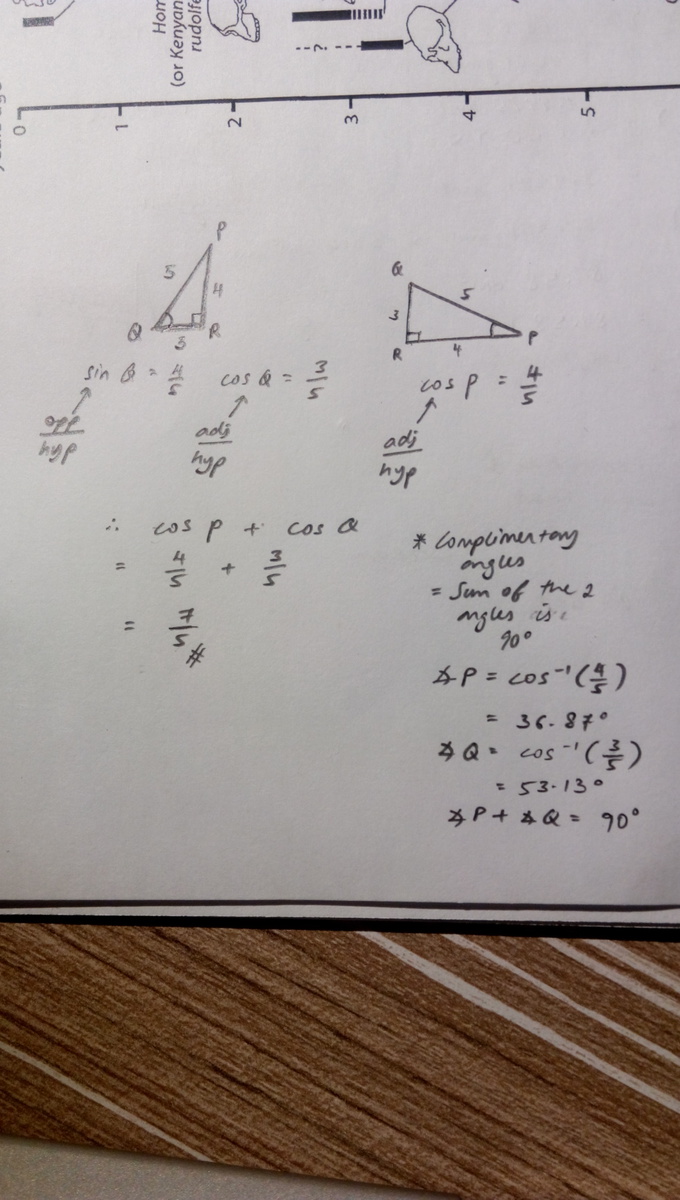 years ago
0
1
2
3
4
5
Hom
(or Kenyan
rudolfe
?
P
5
4
Q
R
3
Q
5
3
R
4
P
sin Q = 4/5
cos Q = 3/5
cos P = 4/5
opp/hyp
adj/hyp
adj/hyp
∴ cos P + cos Q
= 4/5 + 3/5
= 7/5 #
* Complimentary
angles
= Sum of the 2
angles is
90°
∡P = cos⁻¹(4/5)
= 36.87°
∡Q = cos⁻¹(3/5)
= 53.13°
∡P + ∡Q = 90°